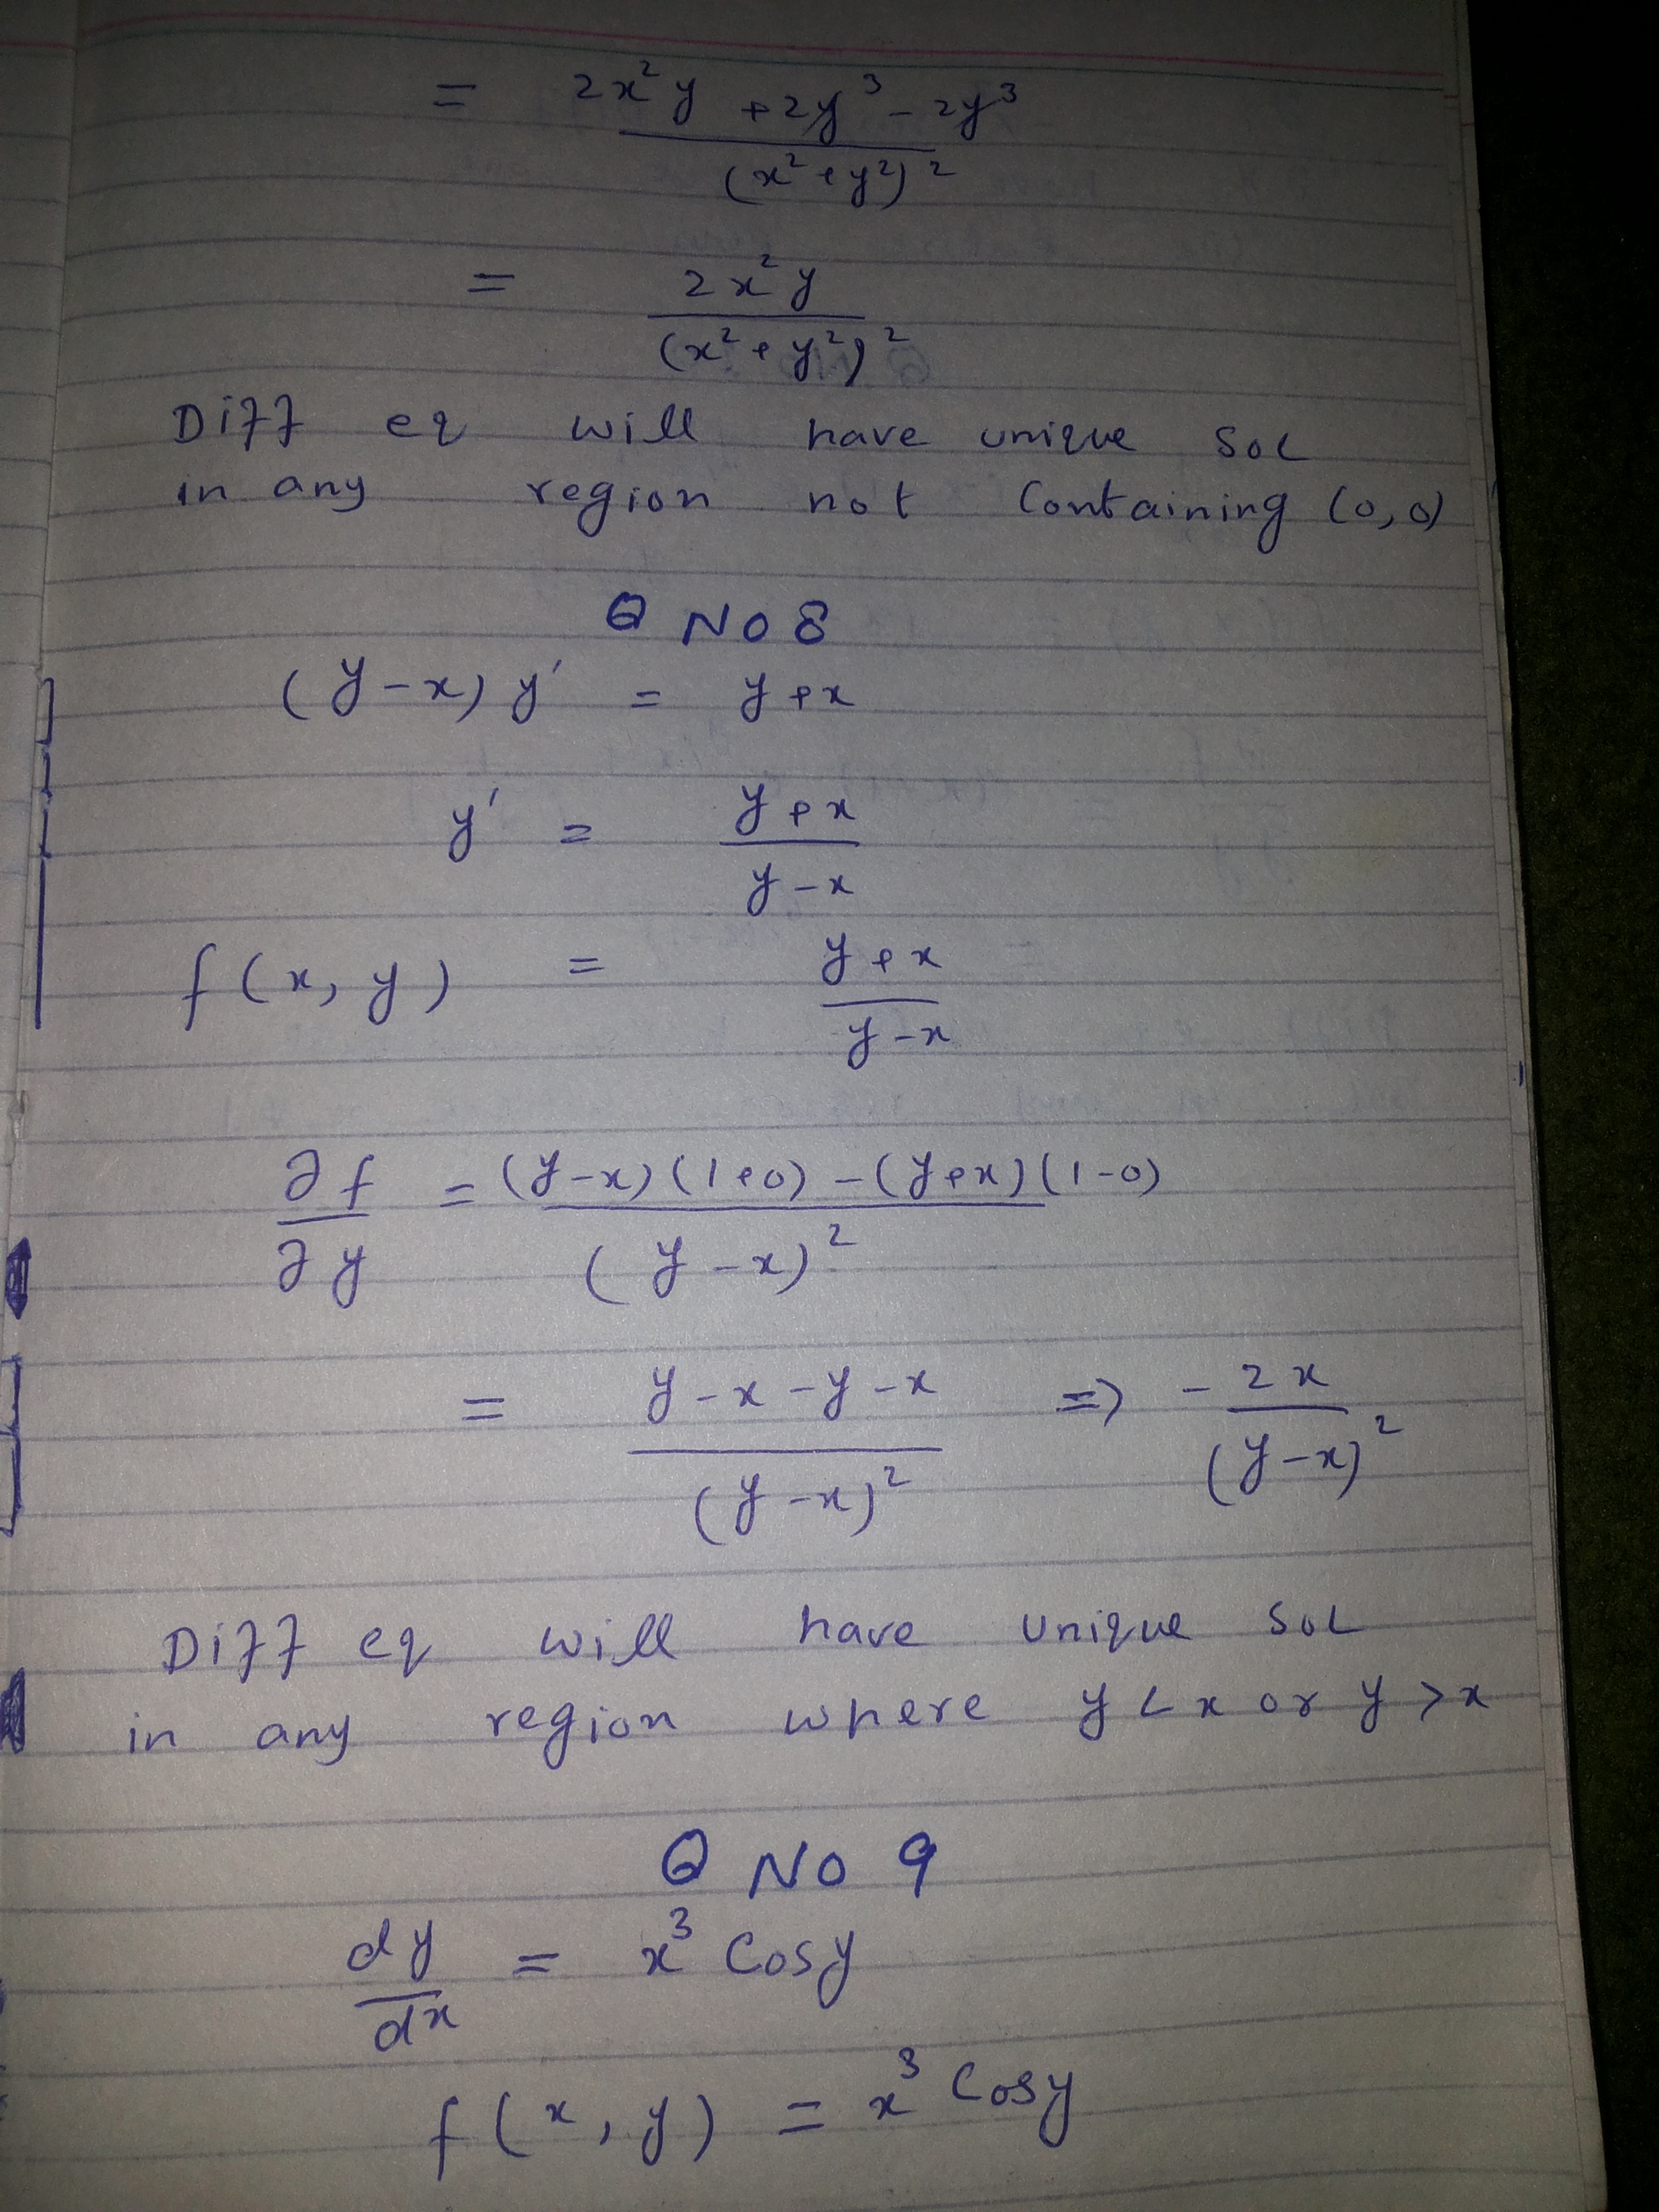 = 2x²y + 2y³ - 2y³
(x² + y²)²
= 2x²y
(x² + y²)²
Diff eq will have unique sol
in any region not containing (0,0)
Q NO 8
(y-x) y' = y+x
y' = y+x
y-x
f(x, y) = y+x
y-x
∂f = (y-x)(1+0) - (y+x)(1-0)
∂y (y-x)²
= y-x-y-x => - 2x
(y-x)² (y-x)²
Diff eq will have unique sol
in any region where y < x or y > x
Q NO 9
dy = x³ Cosy
dx
f(x, y) = x³ Cosy